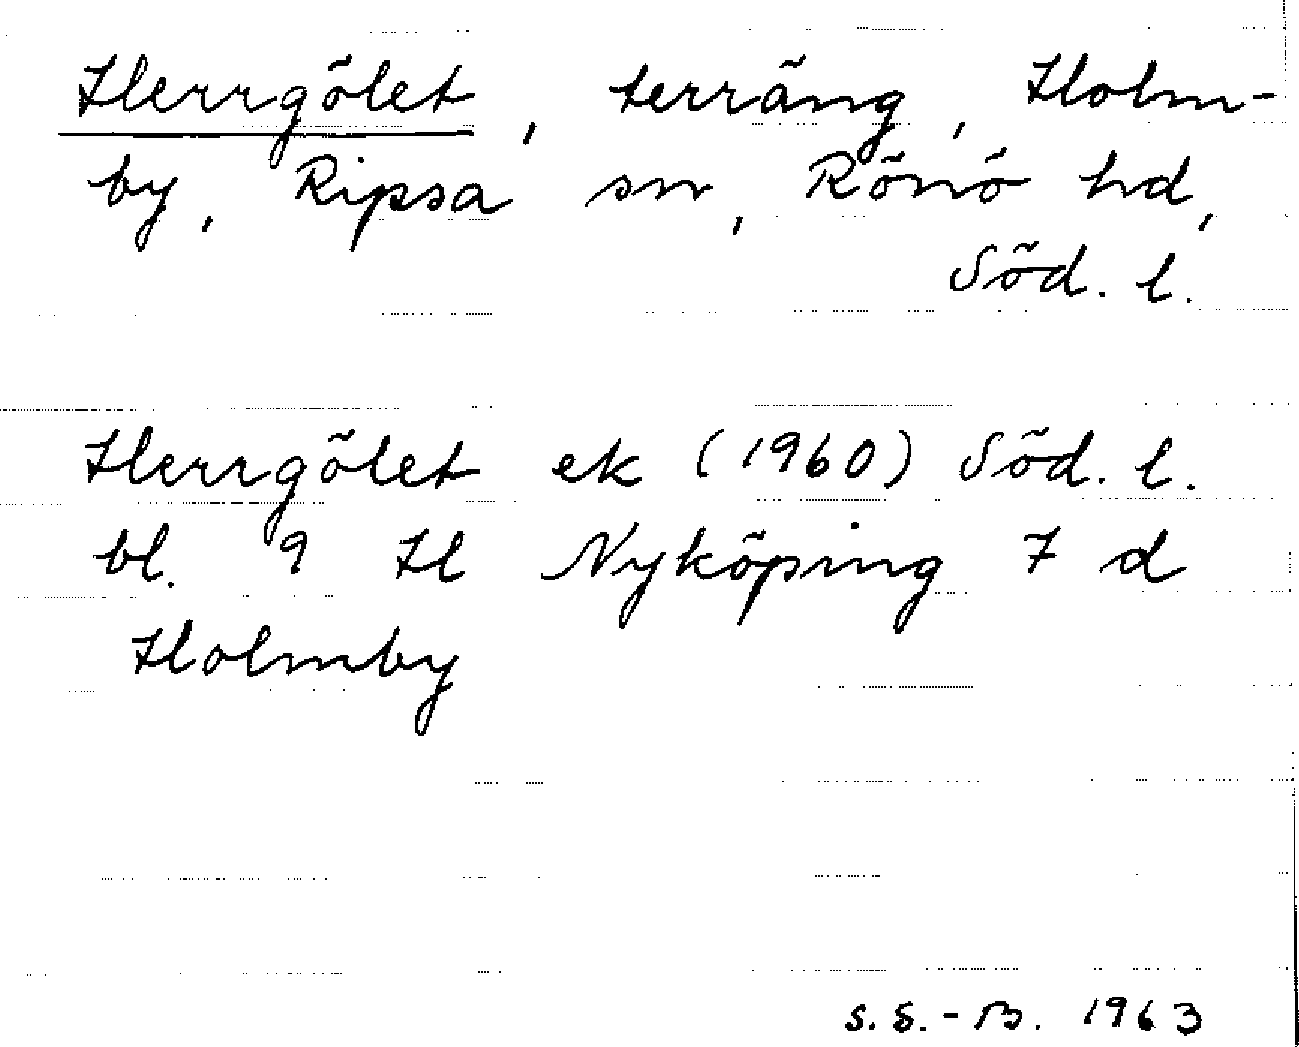 Herrgölet, terräng, Holm-
by, Ripsa sn, Rönö hd,
Söd. l.
Herrgölet ek (1960) Söd. l.
bl. 9 H Nyköping 7 d
Holmby
S. S.-B. 1963